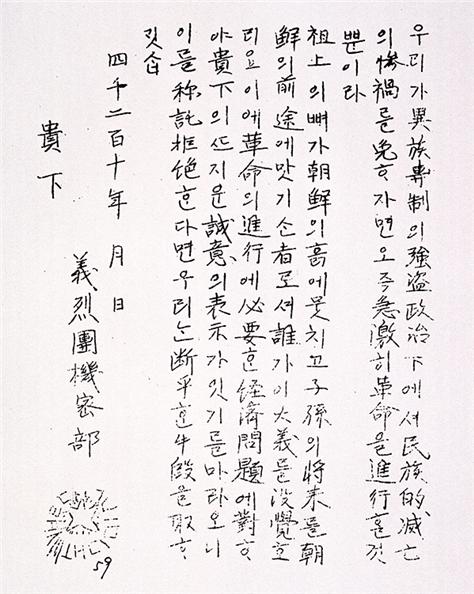 우리가異族專制의強盜政治下에셔民族的滅亡
의慘禍를免ᄒᆞ자면오즉急激히革命을進行ᄒᆞᆯ것
뿐이라
祖上의뼈가朝鮮의흙에뭇치고子孫의將來를朝
鮮의前途에맛기신者로셔誰가이大義를沒覺ᄒᆞ
리요이에革命의進行에必要ᄒᆞᆫ経済問題에對ᄒᆞ
야貴下의誠意의表示가잇기를바라오니
이를稱託拒絶ᄒᆞᆫ다면우리ᄂᆞᆫ断乎ᄒᆞᆫ手段을取ᄒᆞ
깃삽
四千二百十年 月 日
貴下
義烈團機密部
59